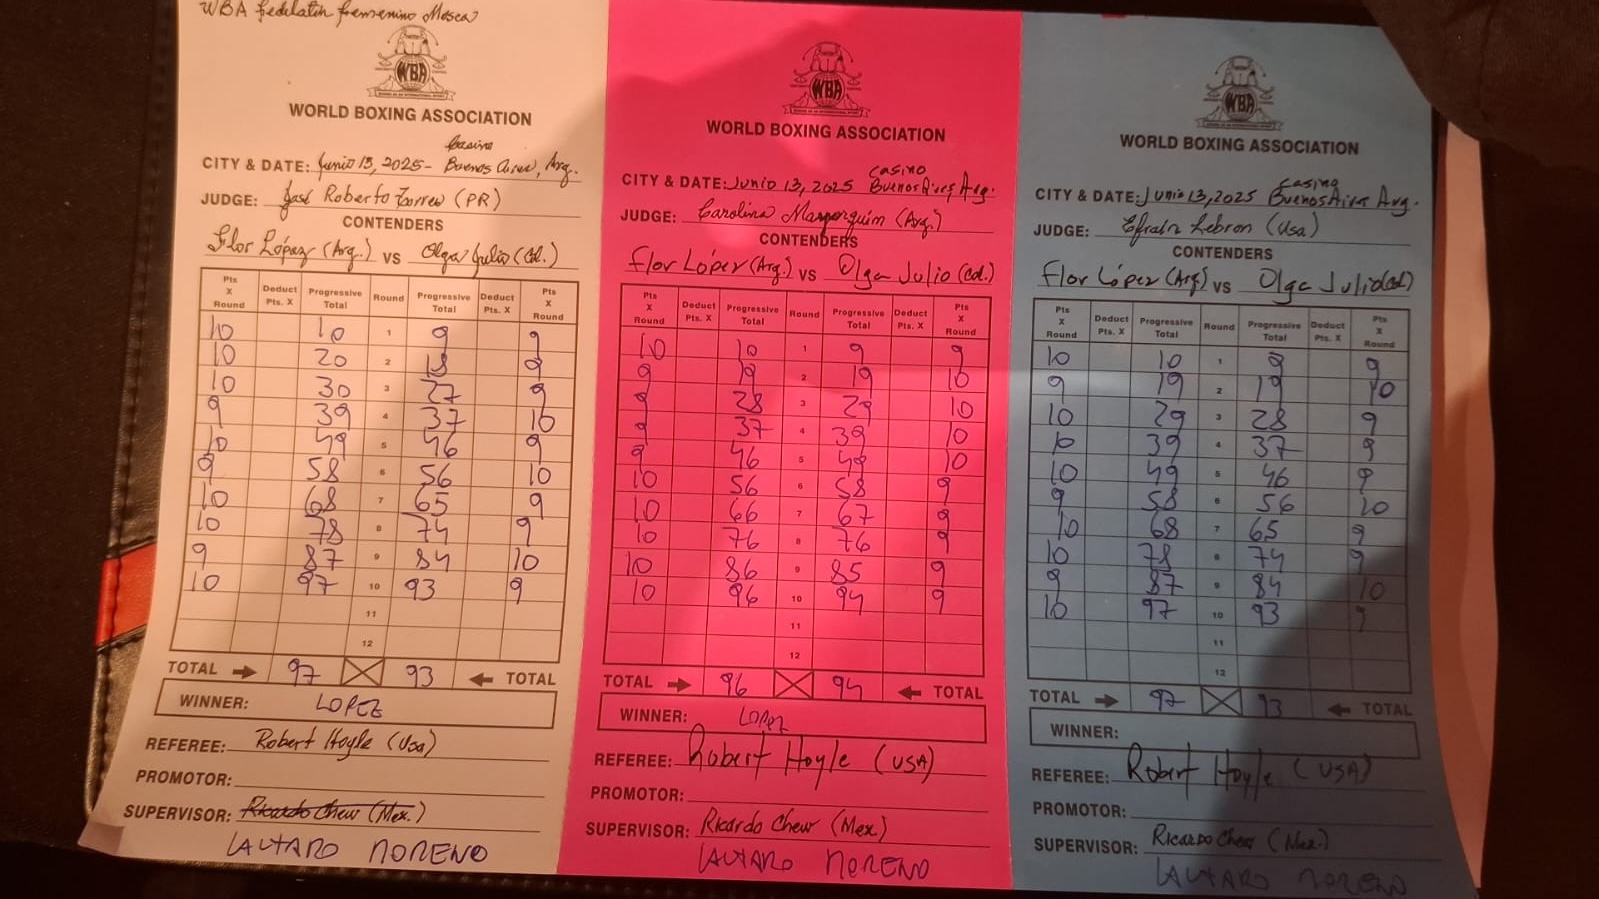 WBA Fedelatin Femenino Mosca
WBA
WORLD BOXING ASSOCIATION
Casino
CITY & DATE: Junio 13, 2025- Buenos Aires, Arg.
JUDGE: José Roberto Torres (PR)
CONTENDERS
Flor López (Arg.) VS Olga Julio (Col.)
Pts X Round Deduct Pts. X Progressive Total Round Progressive Total Deduct Pts. X Pts X Round
10 10 1 9 9
10 20 2 18 9
10 30 3 27 9
9 39 4 37 10
10 49 5 46 9
9 58 6 56 10
10 68 7 65 9
10 78 8 74 9
9 87 9 84 10
10 97 10 93 9
11
12
TOTAL 97 93 TOTAL
WINNER: LOPEZ
REFEREE: Robert Hoyle (Usa)
PROMOTOR:
SUPERVISOR: Ricardo Chew (Mex.)
LAUTARO MORENO
WBA
WORLD BOXING ASSOCIATION
Casino
CITY & DATE: Junio 13, 2025 Buenos Aires, Arg.
JUDGE: Carolina (Arg.)
CONTENDERS
Flor López (Arg.) VS Olga Julio (Col.)
Pts X Round Deduct Pts. X Progressive Total Round Progressive Total Deduct Pts. X Pts X Round
10 10 1 9 9
9 19 2 19 10
9 28 3 29 10
9 37 4 39 10
9 46 5 49 10
10 56 6 58 9
10 66 7 67 9
10 76 8 76 9
10 86 9 85 9
10 96 10 94 9
11
12
TOTAL 96 94 TOTAL
WINNER: LOPEZ
REFEREE: Robert Hoyle (USA)
PROMOTOR:
SUPERVISOR: Ricardo Chew (Mex.)
LAUTARO MORENO
WBA
WORLD BOXING ASSOCIATION
Casino
CITY & DATE: Junio 13, 2025 Buenos Aires Arg.
JUDGE: Efraín Lebron (Usa)
CONTENDERS
Flor López (Arg) VS Olga Julio (Col)
Pts X Round Deduct Pts. X Progressive Total Round Progressive Total Deduct Pts. X Pts X Round
10 10 1 9 9
9 19 2 19 10
10 29 3 28 9
10 39 4 37 9
10 49 5 46 9
9 58 6 56 10
10 68 7 65 9
10 78 8 74 9
9 87 9 84 10
10 97 10 93 9
11
12
TOTAL 97 93 TOTAL
WINNER:
REFEREE: Robert Hoyle (USA)
PROMOTOR:
SUPERVISOR: Ricardo Chew (Mex.)
LAUTARO MORENO